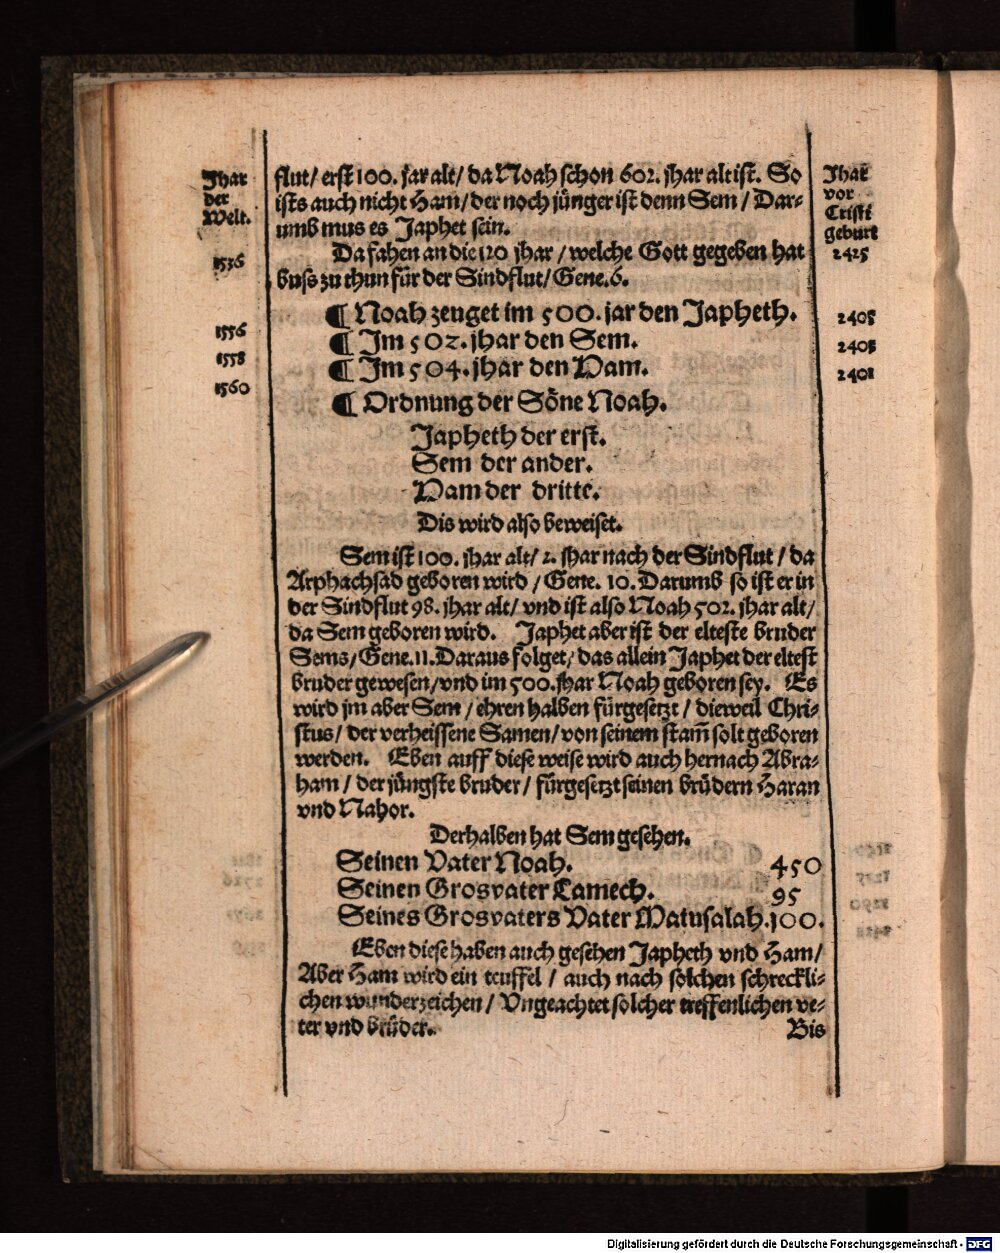 Jhar
der
Welt.
Jhar
vor
Cristi
geburt
flut/ erst 100. jar alt/ da Noah schon 602. jhar alt ist. So
ists auch nicht Ham/ der noch jünger ist denn Sem/ Dar-
umb mus es Japhet sein.
1536 Da fahen an die 120 jhar/ welche Gott gegeben hat 2425
buss zu thun für der Sindflut/ Gene. 6.
¶ Noah zeuget im 500. jar den Japheth. 2405
1556 ¶ Jm 502. jhar den Sem. 2403
1558 ¶ Jm 504. jhar den Ham. 2401
1560
¶ Ordnung der Söne Noah.
Japheth der erst.
Sem der ander.
Ham der dritte.
Dis wird also beweiset.
Sem ist 100. jhar alt/ 2. jhar nach der Sindflut/ da
Arphachsad geboren wird/ Gene. 10. Darumb so ist er in
der Sindflut 98. jhar alt/ vnd ist also Noah 502. jhar alt/
da Sem geboren wird. Japhet aber ist der elteste bruder
Sems/ Gene. 11. Daraus folget/ das allein Japhet der eltest
bruder gewesen/ vnd im 500. jhar Noah geboren sey. Es
wird jm aber Sem/ ehren halben fürgesetzt/ dieweil Chri-
stus/ der verheissene Samen/ von seinem stam̄ solt geboren
werden. Eben auff diese weise wird auch hernach Abra-
ham/ der jüngste bruder/ fürgesetzt seinen brüdern Haran
vnd Nahor.
Derhalben hat Sem gesehen.
Seinen Vater Noah. 450
Seinen Grosvater Lamech. 95
Seines Grosvaters Vater Matusalah. 100.
Eben diese haben auch gesehen Japheth vnd Ham/
Aber Ham wird ein teuffel/ auch nach solchen schreckli-
chen wunderzeichen/ Vngeachtet solcher treffenlichen ve-
ter vnd brüder.
Bis
Digitalisierung gefördert durch die Deutsche Forschungsgemeinschaft - DFG